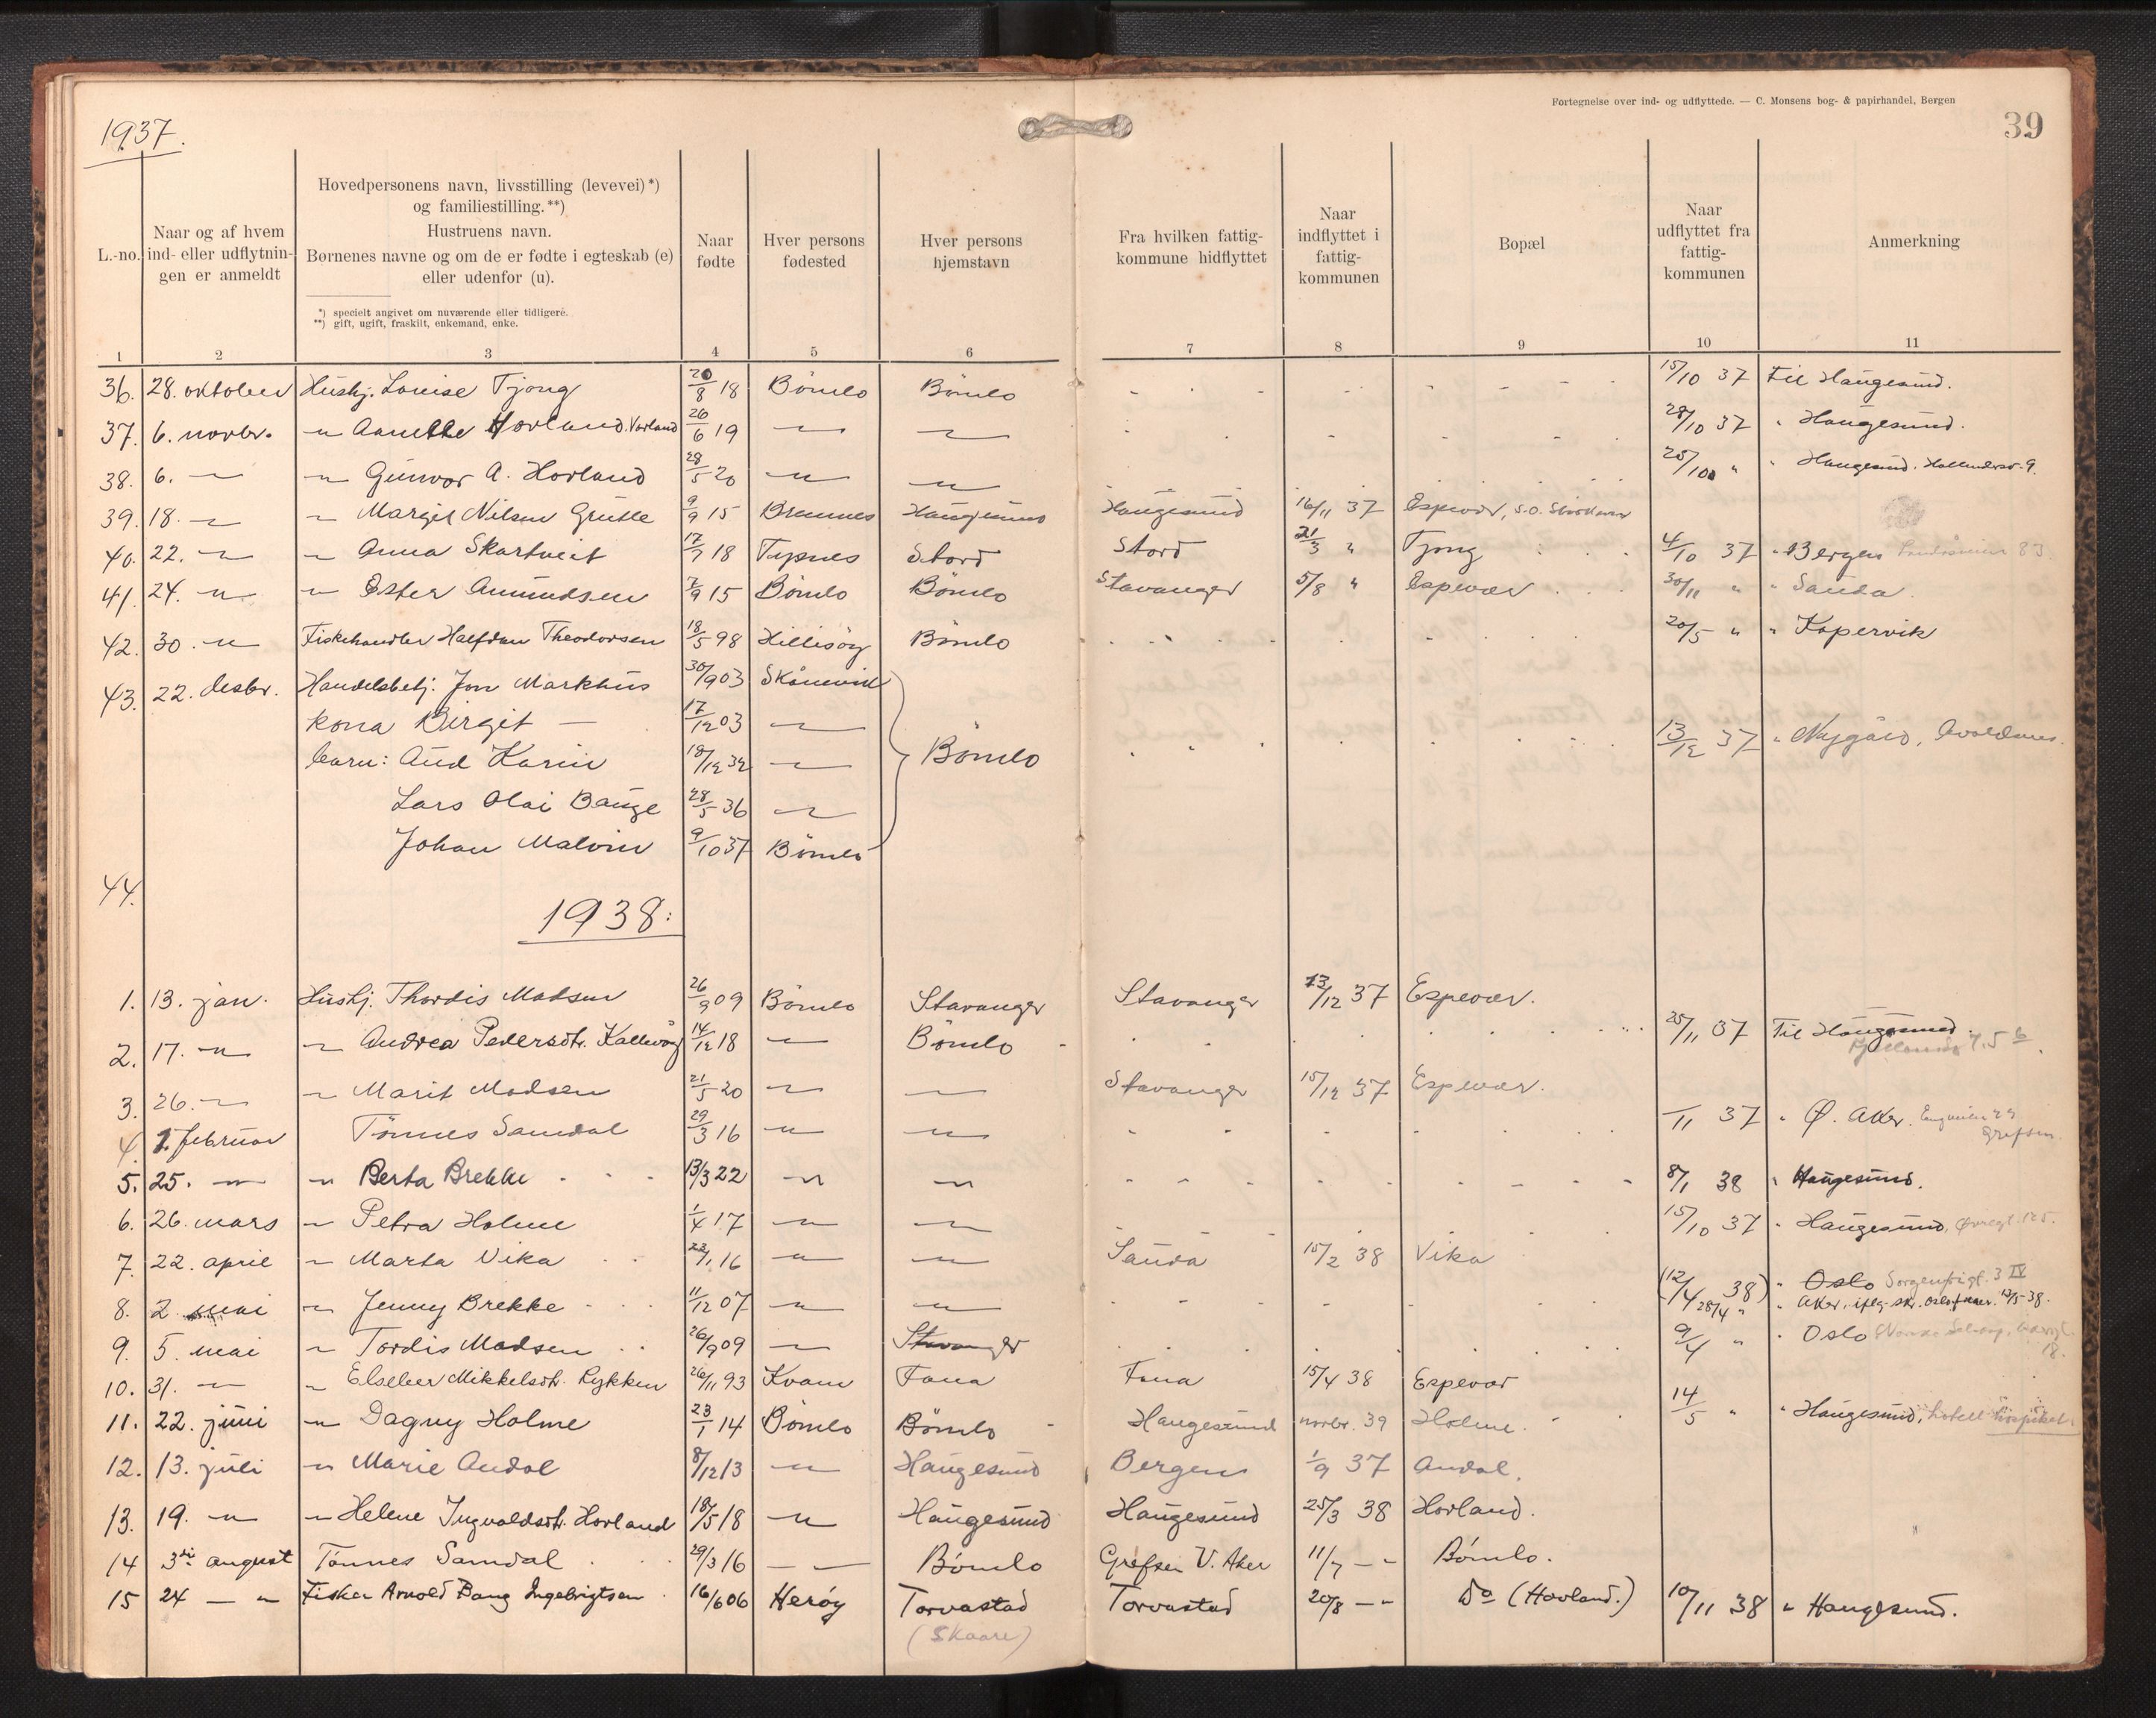 Fortegnelse over ind- og udflyttede. — C. Monsens bog- & papirhandel, Bergen
39
1937.
L.-no.
Naar og af hvem ind- eller udflytnin- gen er anmeldt
Hovedpersonens navn, livsstilling (levevei) *)
og familiestilling. **)
Hustruens navn.
Børnenes navne og om de er fødte i egteskab (e)
eller udenfor (u).
*) specielt angivet om nuværende eller tidligere.
**) gift, ugift, fraskilt, enkemand, enke.
Naar fødte
Hver persons fødested
Hver persons hjemstavn
Fra hvilken fattig- kommune hidflyttet
Naar indflyttet i fattig- kommunen
Bopæl
Naar udflyttet fra fattig- kommunen
Anmerkning
1 2 3 4 5 6 7 8 9 10 11
36. 28. oktober Hushj. Louise Tjong 20/8 18 Bömlo Bömlo - - - - - 15/10 37 til Haugesund.
37. 6. novbr. " Anethe Hovland 26/6 19 " " - - - 28/10 37 " Haugesund.
38. 6. " " Gunvor A. Hovland 28/5 20 " " 25/10 " " Haugesund.
39. 18. " " Margit Nilsen Grutle 9/9 15 Bremnes Haugesund Haugesund 16/11 37 Espevær,
40. 22. " " Anna Skartveit 17/7 18 Tysnes Stord Stord 21/3 " Tjong 4/10 37 " Bergen
41. 24. " " Ester Amundsen 7/9 15 Bömlo Bömlo Stavanger 5/8 " Espevær 30/11 " " Sauda.
42. 30. " Fiskehandler Halfdan Theodorsen 18/5 98 Hillisöy Bömlo 20/5 " " Kopervik
43. 22. desbr. Handelsbetj. Jon Markhus 30/9 03 Skånevik
kona Birgit — 17/12 03 "
Bömlo 13/12 37 " Nygård, Avaldsnes.
barn: Aud Karin 18/12 32 "
Lars Olai Bauge 28/5 36 "
Johan Malvin 9/10 37 Bömlo
44.
1938:
1. 13. jan. Hushj. Thordis Madsen 26/9 09 Bömlo Stavanger Stavanger 13/12 37 Espevær.
2. 17. " " Andrea Pedersdtr. Kallevåg 14/12 18 " Bömlo - 25/11 37 Til Haugesund.
3. 26. " " Marit Madsen 21/5 20 " " Stavanger 15/12 37 Espevær.
4. 1. februar Tönnes Samdal 29/3 16 " " - - - /11 37 " Ø. Aker.
Grefsen.
5. 25. " " Berta Brekke 13/3 22 " " - - - 8/1 38 " Haugesund.
6. 26. mars " Petra Holme 1/4 17 " " 15/10 37 " Haugesund,
7. 22. april " Marta Vika 23/1 16 " " Sauda 15/2 38 Vika
8. 2. mai " Jenny Brekke 11/12 07 " " - - - (12/4 38) " Oslo Sorgenfrigt. 3 IV
28/4 " " Aker,
9. 5. mai " Tordis Madsen 26/9 09 " Stavanger 9/4 " " Oslo
18.
10. 31. " " Elseber Mikkelsdtr. Lykken 26/11 93 Kvam Fana Fana 15/4 38 Espevær
11. 22. juni " Dagny Holme 23/1 14 Bömlo Bömlo - Haugesund novbr. 39 Holme. 14/5 " " Haugesund, hotell hospitset.
12. 13. juli " Marie Audal 8/12 13 " Haugesund Bergen 1/9 37 Audal.
13. 19. " " Helene Ingvaldsdtr. Hovland 18/5 18 " Haugesund Haugesund 25/3 38 Hovland.
14 3di august Tönnes Samdal 29/3 16 — " — Bömlo Grefsen V. Aker 11/7 — " Bömlo.
15 24 — " Fisker Arnold Bang Ingebrigtsen 16/6 06 Herøy Torvastad Torvastad 20/8 — " Do (Hovland.) 10/11 38 " Haugesund.
(Skaare)